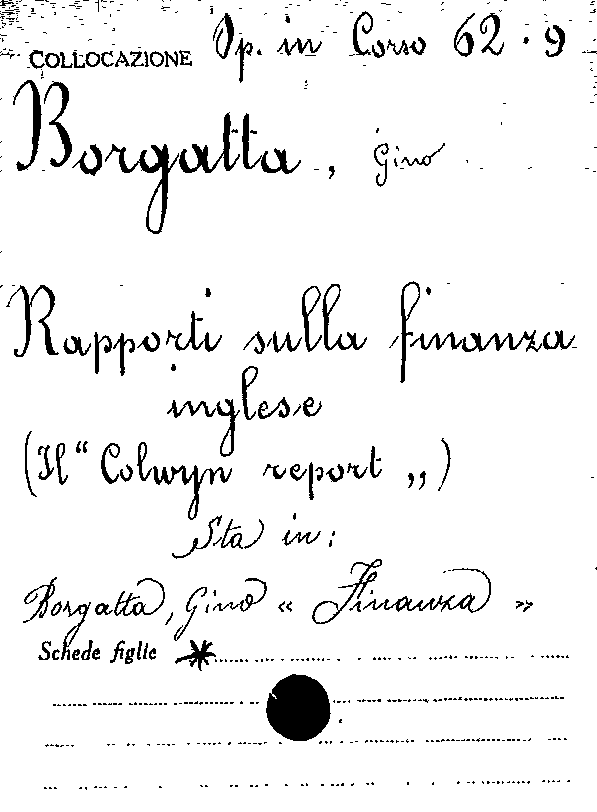 COLLOCAZIONE Op. in Corso 62.9
Borgatta, Gino
Rapporti sulla finanza
inglese
(Il “Colwyn report„)
Sta in:
Borgatta, Gino « Finanza »
Schede figlie *